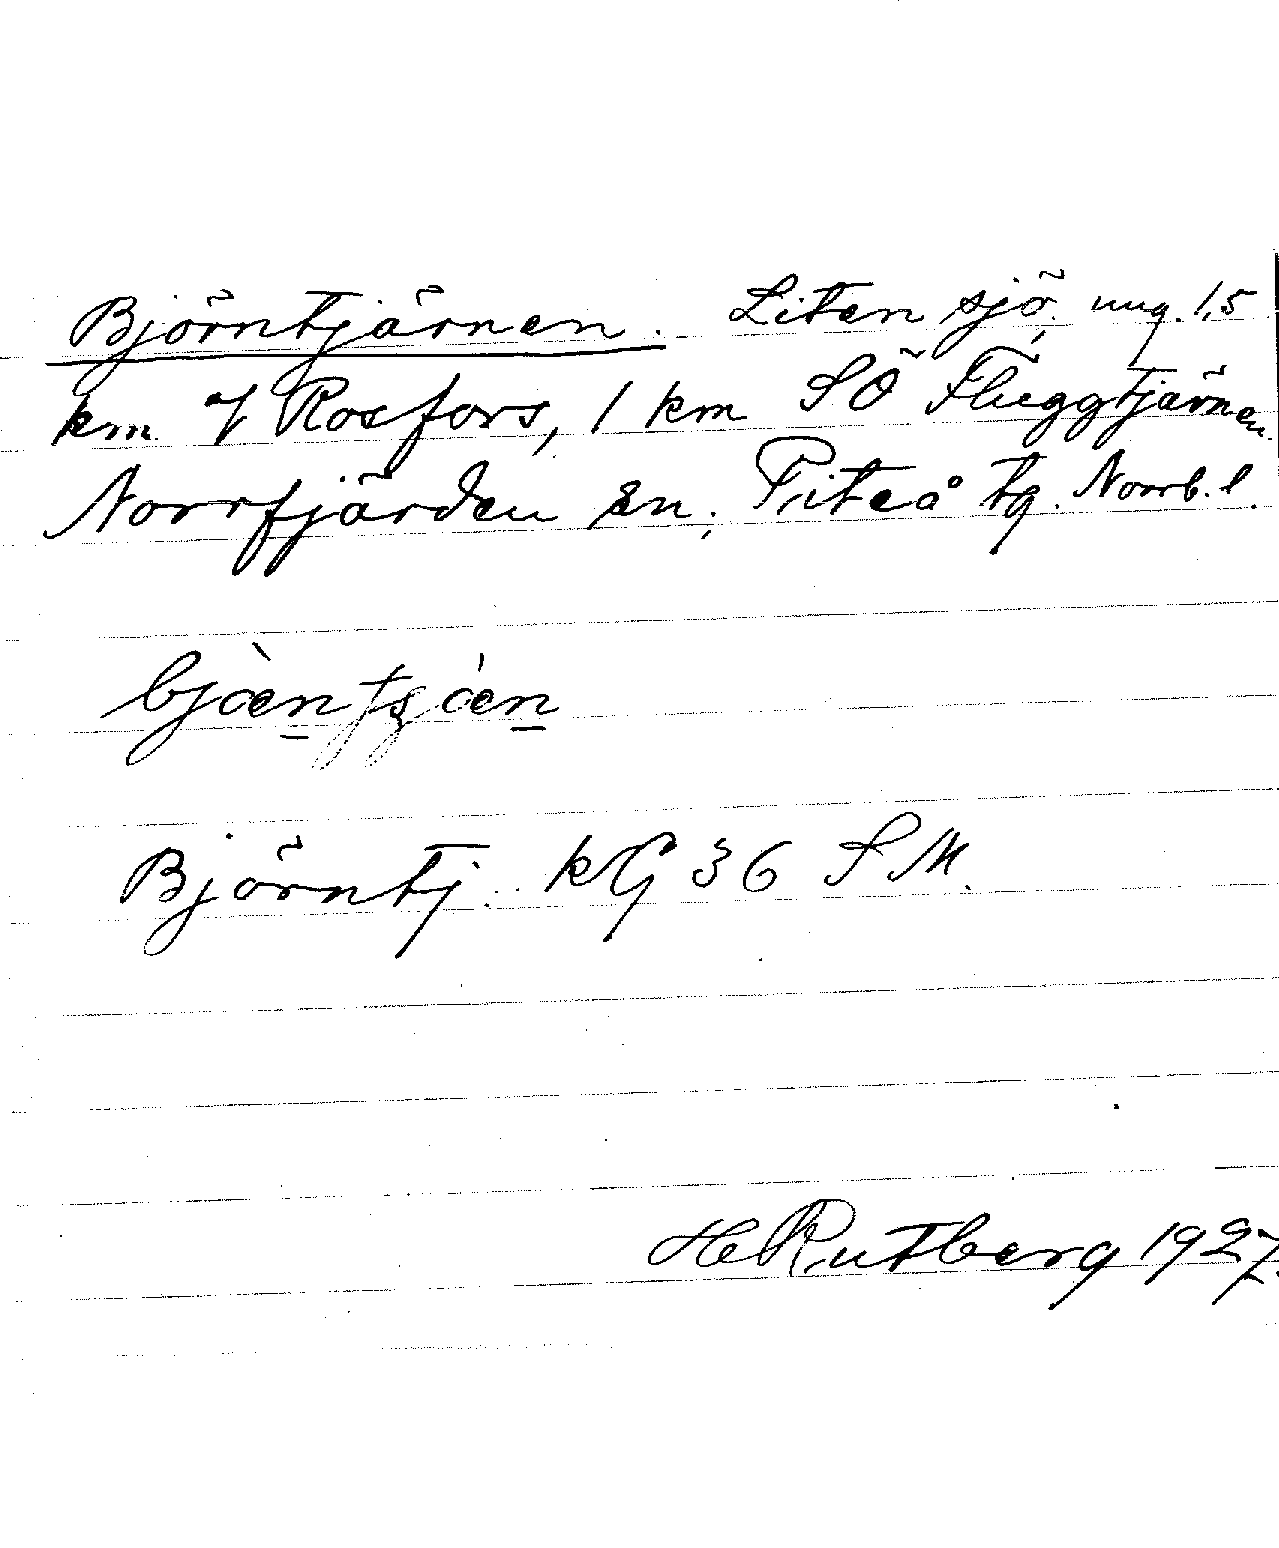 Björntjärnen. Liten sjö, ung. 1,5
km af Rosfors, 1 km SÖ Fluggtjärnen.
Norrfjärden sn; Piteå tg. Norrb. l.
Björntj. kG 36 SM.
HRutberg 1927.